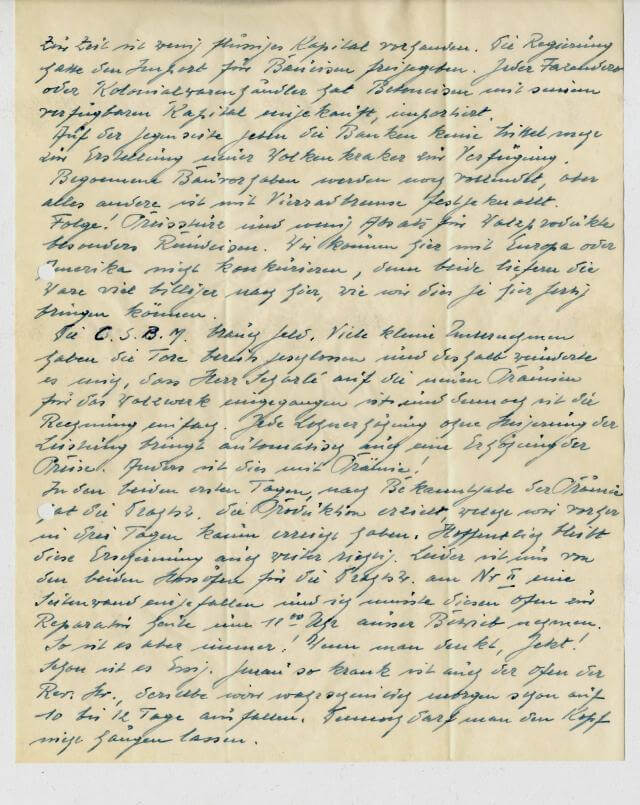 Zur Zeit ist wenig flüssiges Kapital vorhanden. Die Regierung
hatte den Import für Baueisen freigegeben. Jeder Fazendero
oder Kolonialwarenhändler hat Betoneisen mit seinem
verfügbaren Kapital eingekauft, importiert.
Auf der Gegenseite geben die Banken keine Mittel mehr
zur Erstellung neuer Wolkenkratzer zur Verfügung.
Begonnene Bauvorhaben werden noch vollendet, aber
alles andere ist mit Vierradbremse festgeknallt.
Folge! Preissturz und wenig Absatz für Walzprodukte
besonders Rundeisen. Wir können hier mit Europa oder
Amerika nicht konkurieren, denn beide liefern die
Ware viel billiger nach hier, wie wir dies je hier fertig
bringen können.
Die C.S.B.M. brauch Geld. Viele kleine Unternehmen
haben die Tore bereits geschlossen und deshalb wunderte
es mich, dass Herr Scharlé auf die neuen Prämien
für das Walzwerk eingegangen ist und dennoch ist die
Rechnung einfach. Jede Lohnerhöhung ohne Steigerung der
Leistung bringt automatisch auch eine Erhöhung der
Preise. Anders ist dies mit Prämie!
In den beiden ersten Tagen, nach Bekanntgabe der Prämie
hat die die Produktion erreicht, welche wir vorher
in drei Tagen kaum erreicht haben. Hoffentlich bleibt
diese Erscheinung auch weiter richtig. Leider ist uns von
den beiden für die am Nr II eine
Seitenwand eingefallen und ich musste diesen Ofen zur
Reparatur heute um 11 00 Uhr ausser Betrieb nehmen.
So ist es aber immer! Wenn man denkt, Jetzt!
Schon ist es Essig. Genau so krank ist auch der Ofen der
derselbe wird wahrscheinlich morgen schon auf
10 bis 12 Tage ausfallen. Dennoch darf man den Kopf
nicht hängen lassen.